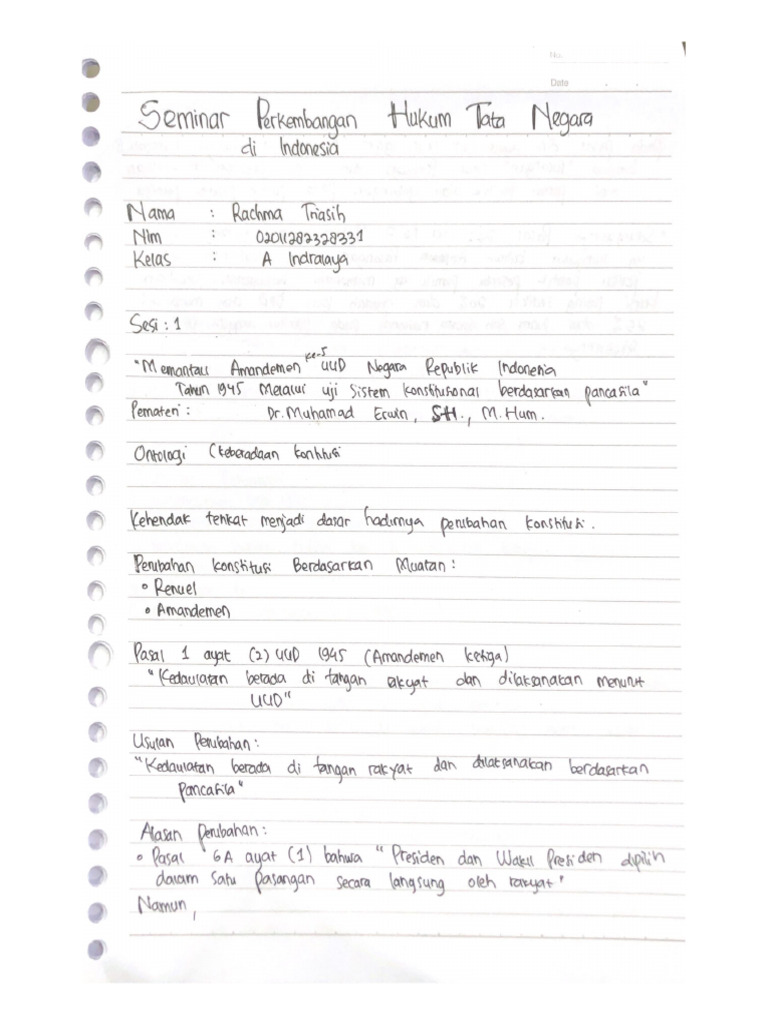 No.
Date
Seminar Perkembangan Hukum Tata Negara
di Indonesia
Nama : Rachma Triasih
NIm : 02011282328331
Kelas : A Indralaya
Sesi : 1
"Memantau Amandemen ke-5 UUD Negara Republik Indonesia
Tahun 1945 Melalui uji Sistem konstitusional berdasarkan pancasila"
Pemateri : Dr. Muhamad Erwin, SH., M. Hum.
Ontologi (keberadaan konstitusi
Kehendak terikat menjadi dasar hadirnya perubahan konstitusi.
Perubahan konstitusi Berdasarkan Muatan :
• Renuel
• Amandemen
Pasal 1 ayat (2) UUD 1945 (Amandemen ketiga)
"Kedaulatan berada di tangan rakyat dan dilaksanakan menurut
UUD"
Usulan Perubahan :
"Kedaulatan berada di tangan rakyat dan dilaksanakan berdasarkan
pancasila"
Alasan Perubahan :
• Pasal 6A ayat (1) bahwa "Presiden dan Wakil Presiden dipilih
dalam satu pasangan secara langsung oleh rakyat"
Namun,